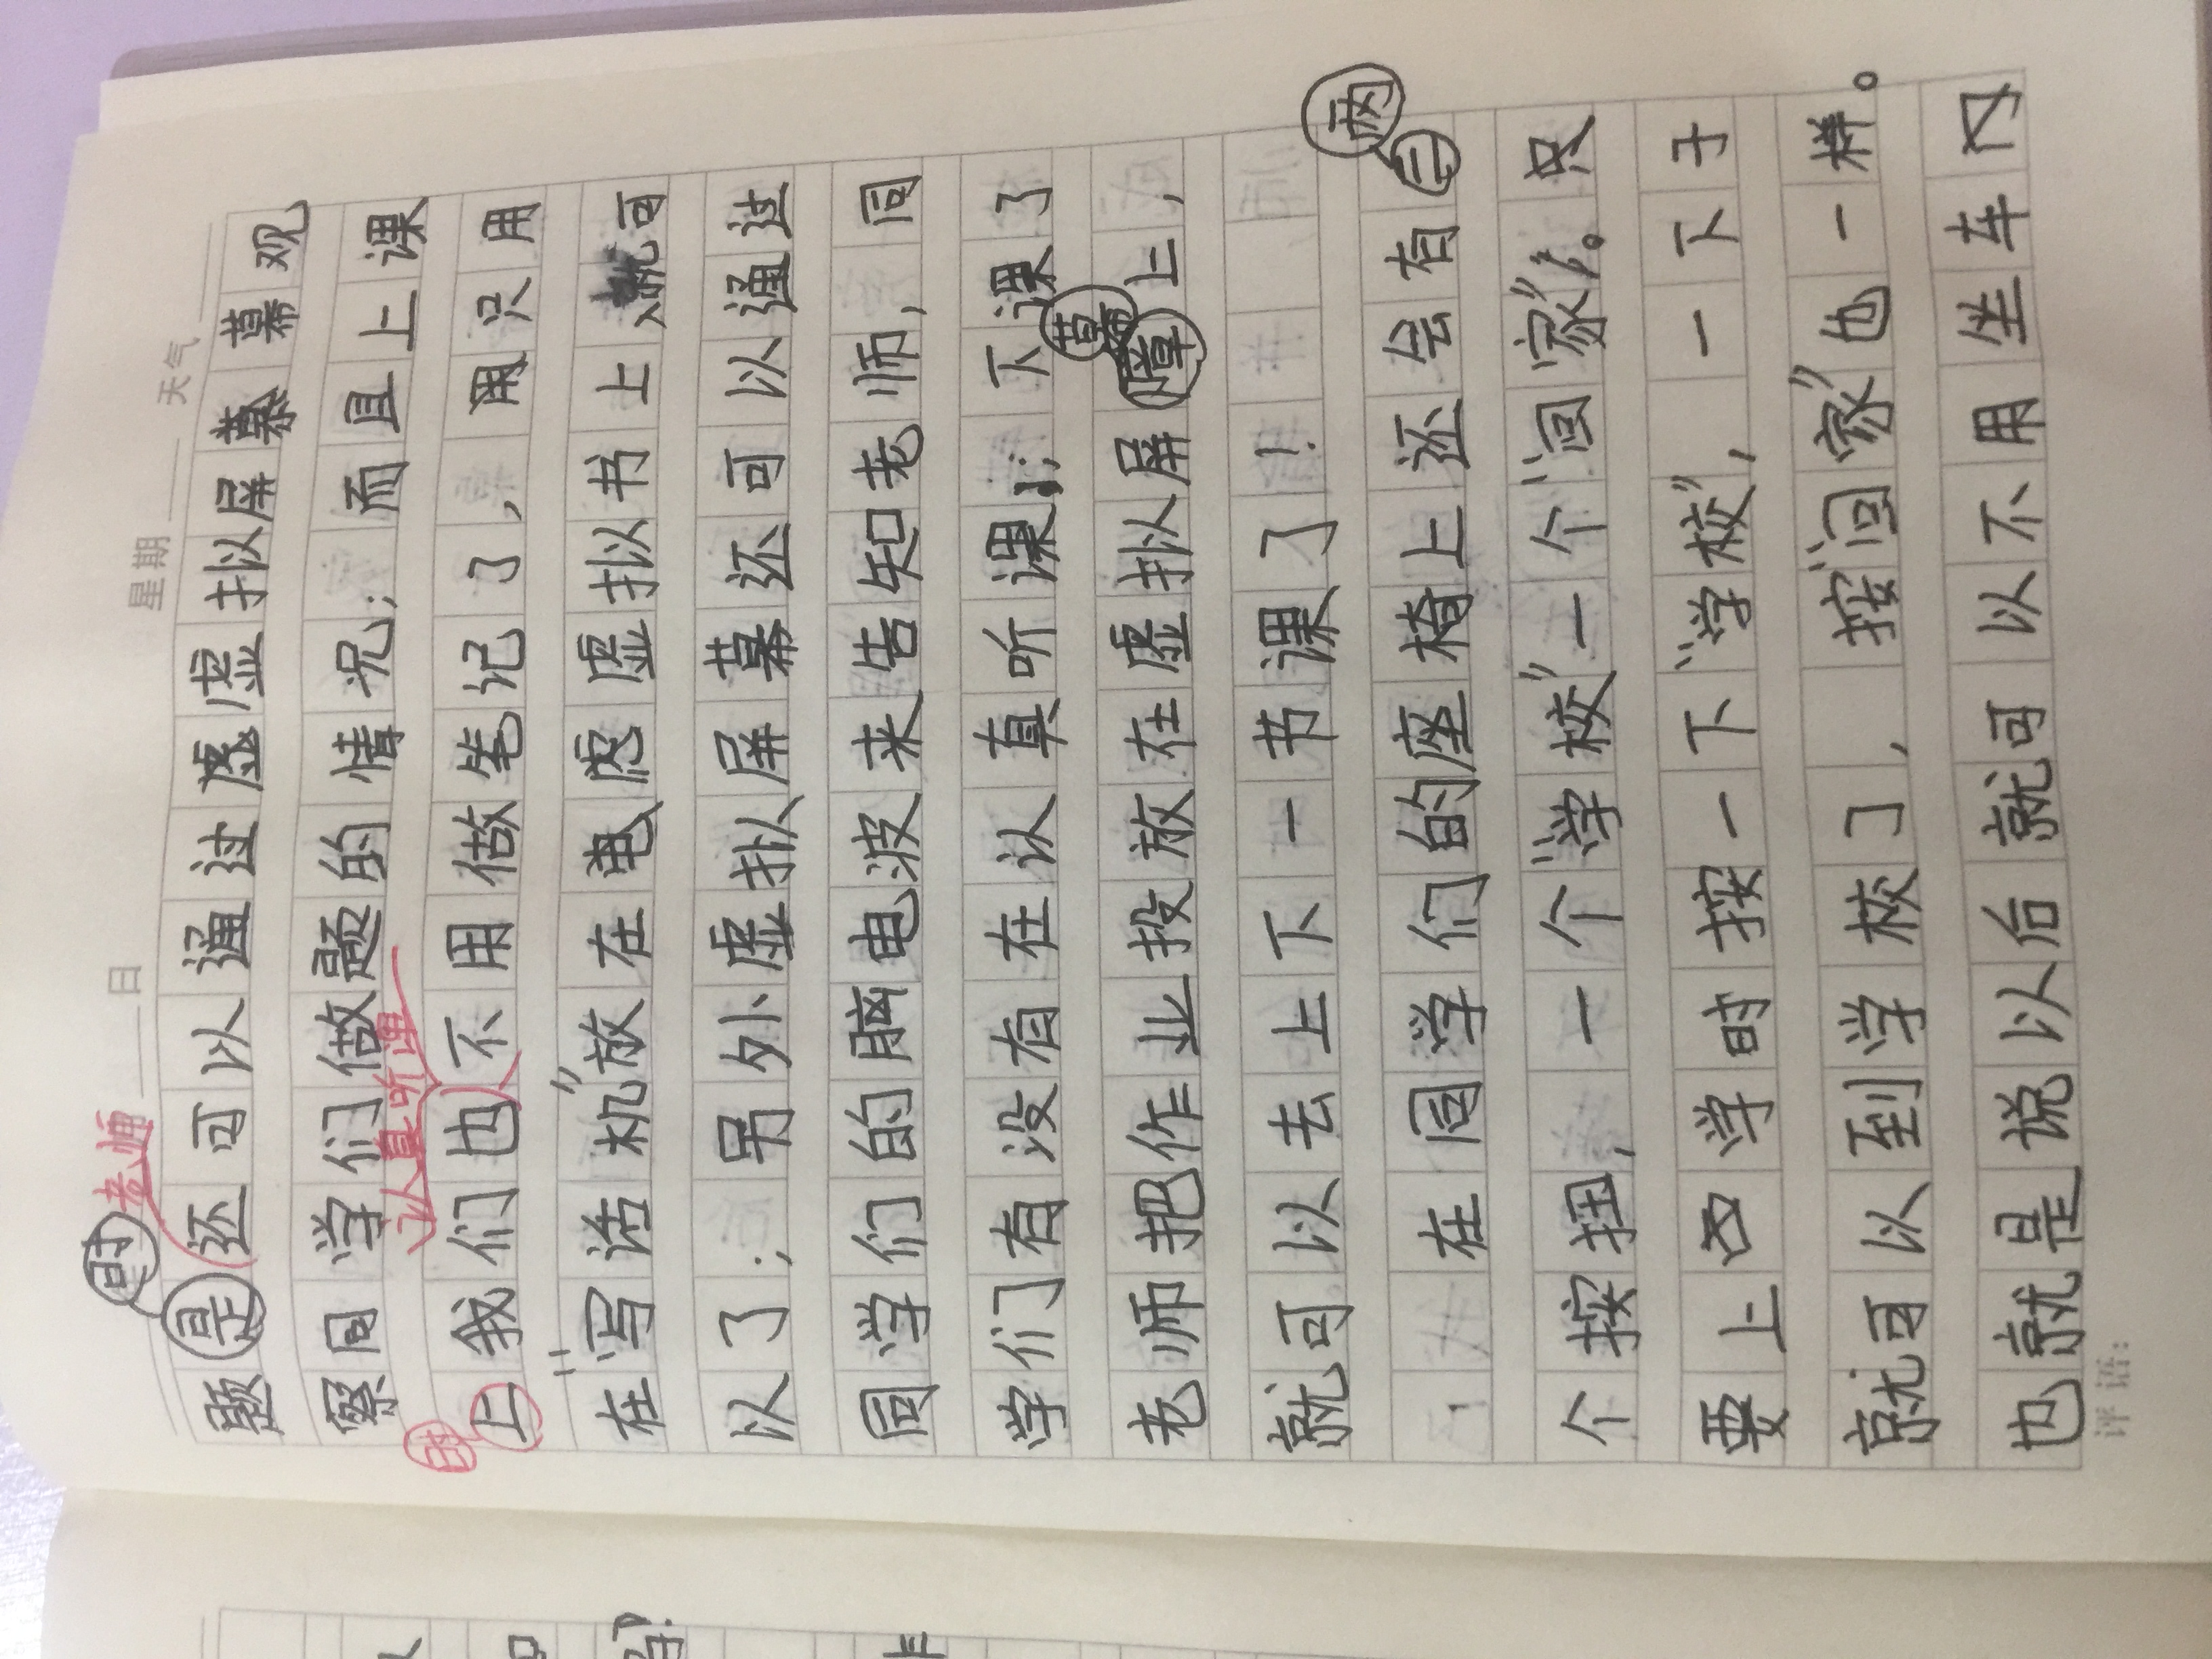 日 星期 天气
时 老师
题是还可以通过虚虚拟屏幕幕观
察同学们做题的情况；而且上课
时 认真听课
上我们也不用做笔记了，用只用
在“写话机”放在电虑虚拟书上就可
以了；另外虚拟屏幕还可以通过
同学们的脑电波来告知老师，同
学们有没有在认真听课；下课了
幕
老师把作业投放在虚拟屏障上，
就可以去上下一节课了！
两
在同学们的座椅上还会有二
个按扭，一个“学校”一个“回家”。只
要上学时按一下“学校”，一下子
就可以到学校了，按“回家”也一样。
也就是说以后就可以不用坐车
评语：